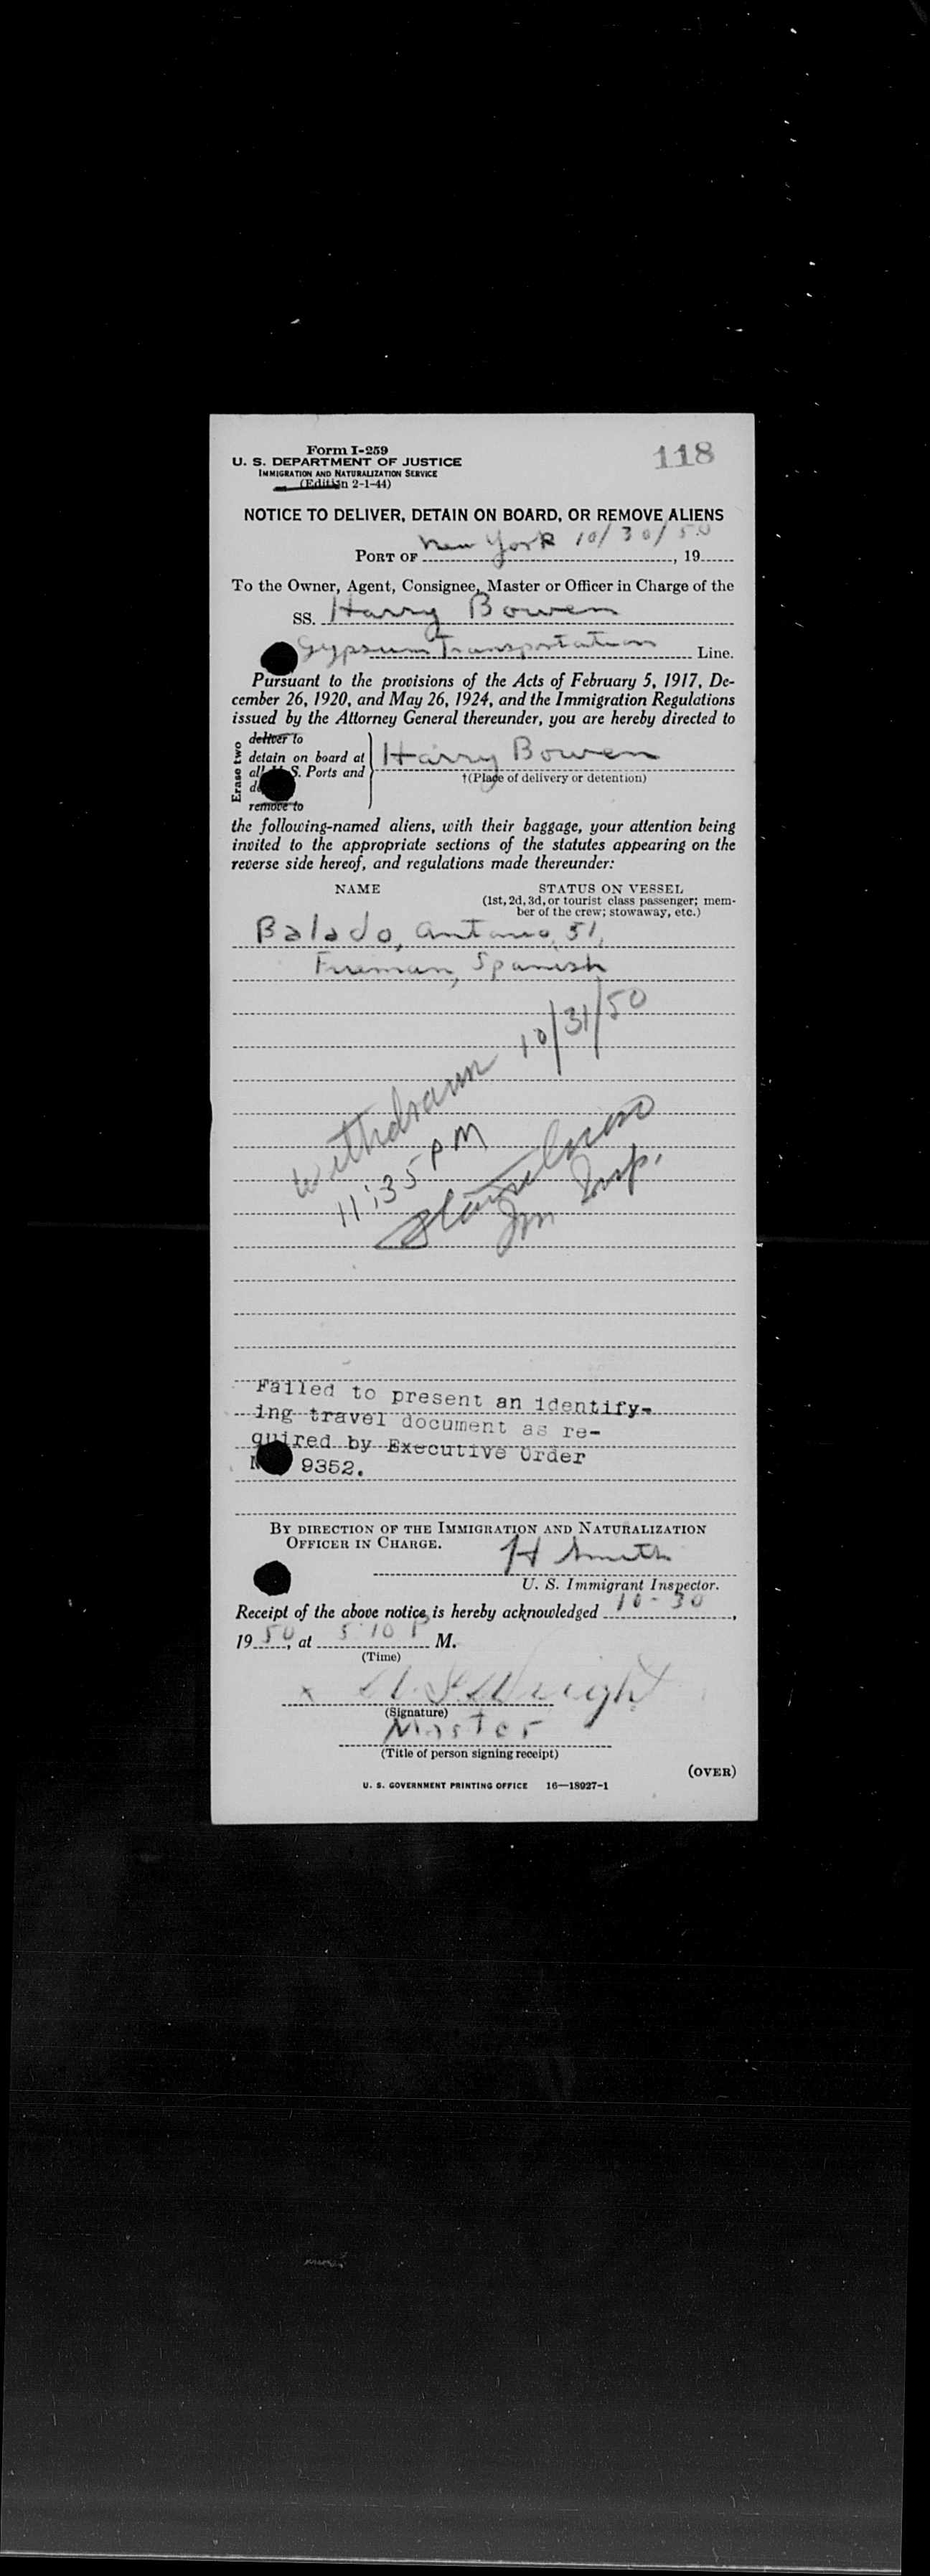 Form I-259
118
U. S. DEPARTMENT OF JUSTICE
IMMIGRATION AND NATURALIZATION SERVICE
(Edition 2-1-44)
NOTICE TO DELIVER, DETAIN ON BOARD, OR REMOVE ALIENS
PORT OF New York 10/30/50, 19
To the Owner, Agent, Consignee, Master or Officer in Charge of the
SS. Harry Bowen
Gypsum Transportation Line.
Pursuant to the provisions of the Acts of February 5, 1917, De-
cember 26, 1920, and May 26, 1924, and the Immigration Regulations
issued by the Attorney General thereunder, you are hereby directed to
Erase two
deliver to
detain on board at
all U. S. Ports and
remove to
Harry Bowen
†(Place of delivery or detention)
the following-named aliens, with their baggage, your attention being
invited to the appropriate sections of the statutes appearing on the
reverse side hereof, and regulations made thereunder:
NAME
STATUS ON VESSEL
(1st, 2d, 3d, or tourist class passenger; mem-
ber of the crew; stowaway, etc.)
Balado, Antonio, 51,
Fireman, Spanish
Withdrawn 10/31/50
11:35 PM
Imm Insp.
Failed to present an identify-
ing travel document as re-
quired by Executive Order
9352.
BY DIRECTION OF THE IMMIGRATION AND NATURALIZATION
OFFICER IN CHARGE.
H Smith
U. S. Immigrant Inspector.
Receipt of the above notice is hereby acknowledged 10-30,
1950, at 5:10 P M.
(Time)
x Wright
(Signature)
Master
(Title of person signing receipt)
(OVER)
U. S. GOVERNMENT PRINTING OFFICE 16—18927-1